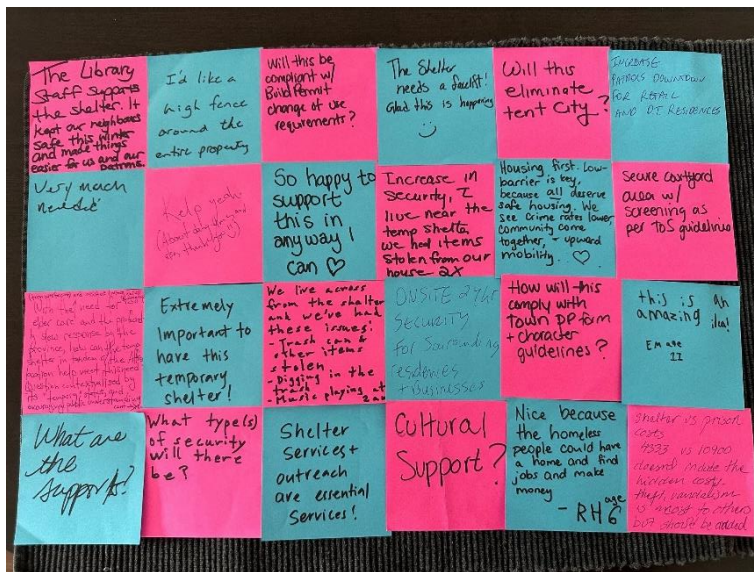 The Library
Staff Supports
the shelter. It
kept our neighbours
safe this winter
and made things
easier for us and our
patrons.
I'd like a
high fence
around the
entire property
Will this be
compliant w/
Build Permit
change of use
requirements?
The Shelter
needs a facelift!
Glad this is happening
Will this
eliminate
tent City?
INCREASE
PATROLS DOWNTOWN
FOR RETAIL
AND D.T. RESIDENCES
Very much
needed
So happy to
support
this in
anyway I
can ♡
Increase in
security, I
live near the
temp shelter
we had items
stolen from our
house 2X
Housing first. Low-
barrier is key,
because all deserve
safe housing. We
see crime rates lower,
community come
together, + upward
mobility. ♡
Secure courtyard
area w/
screening as
per ToS guidelines
Extremely
important to
have this
temporary
shelter!
We live across
from the shelter
and we've had
these issues!
- Trash can &
other items
stolen
- Digging in the
trash
- Music playing at
ONSITE 24hr
SECURITY
for Surrounding
residences
+ Businesses
How will this
comply with
Town DP form
+ character
guidelines?
this is an
amazing idea!
Em age
11
What are
the
supports?
What type(s)
of security
will there
be?
Shelter
Services +
outreach
are essential
Services!
Cultural
Support?
Nice because
the homeless
people could have
a home and find
jobs and make
money
- RH age 6
Shelter vs prison
costs
4323 vs 10900
doesn't include the
hidden costs.
theft, vandalism
to others
but should be added